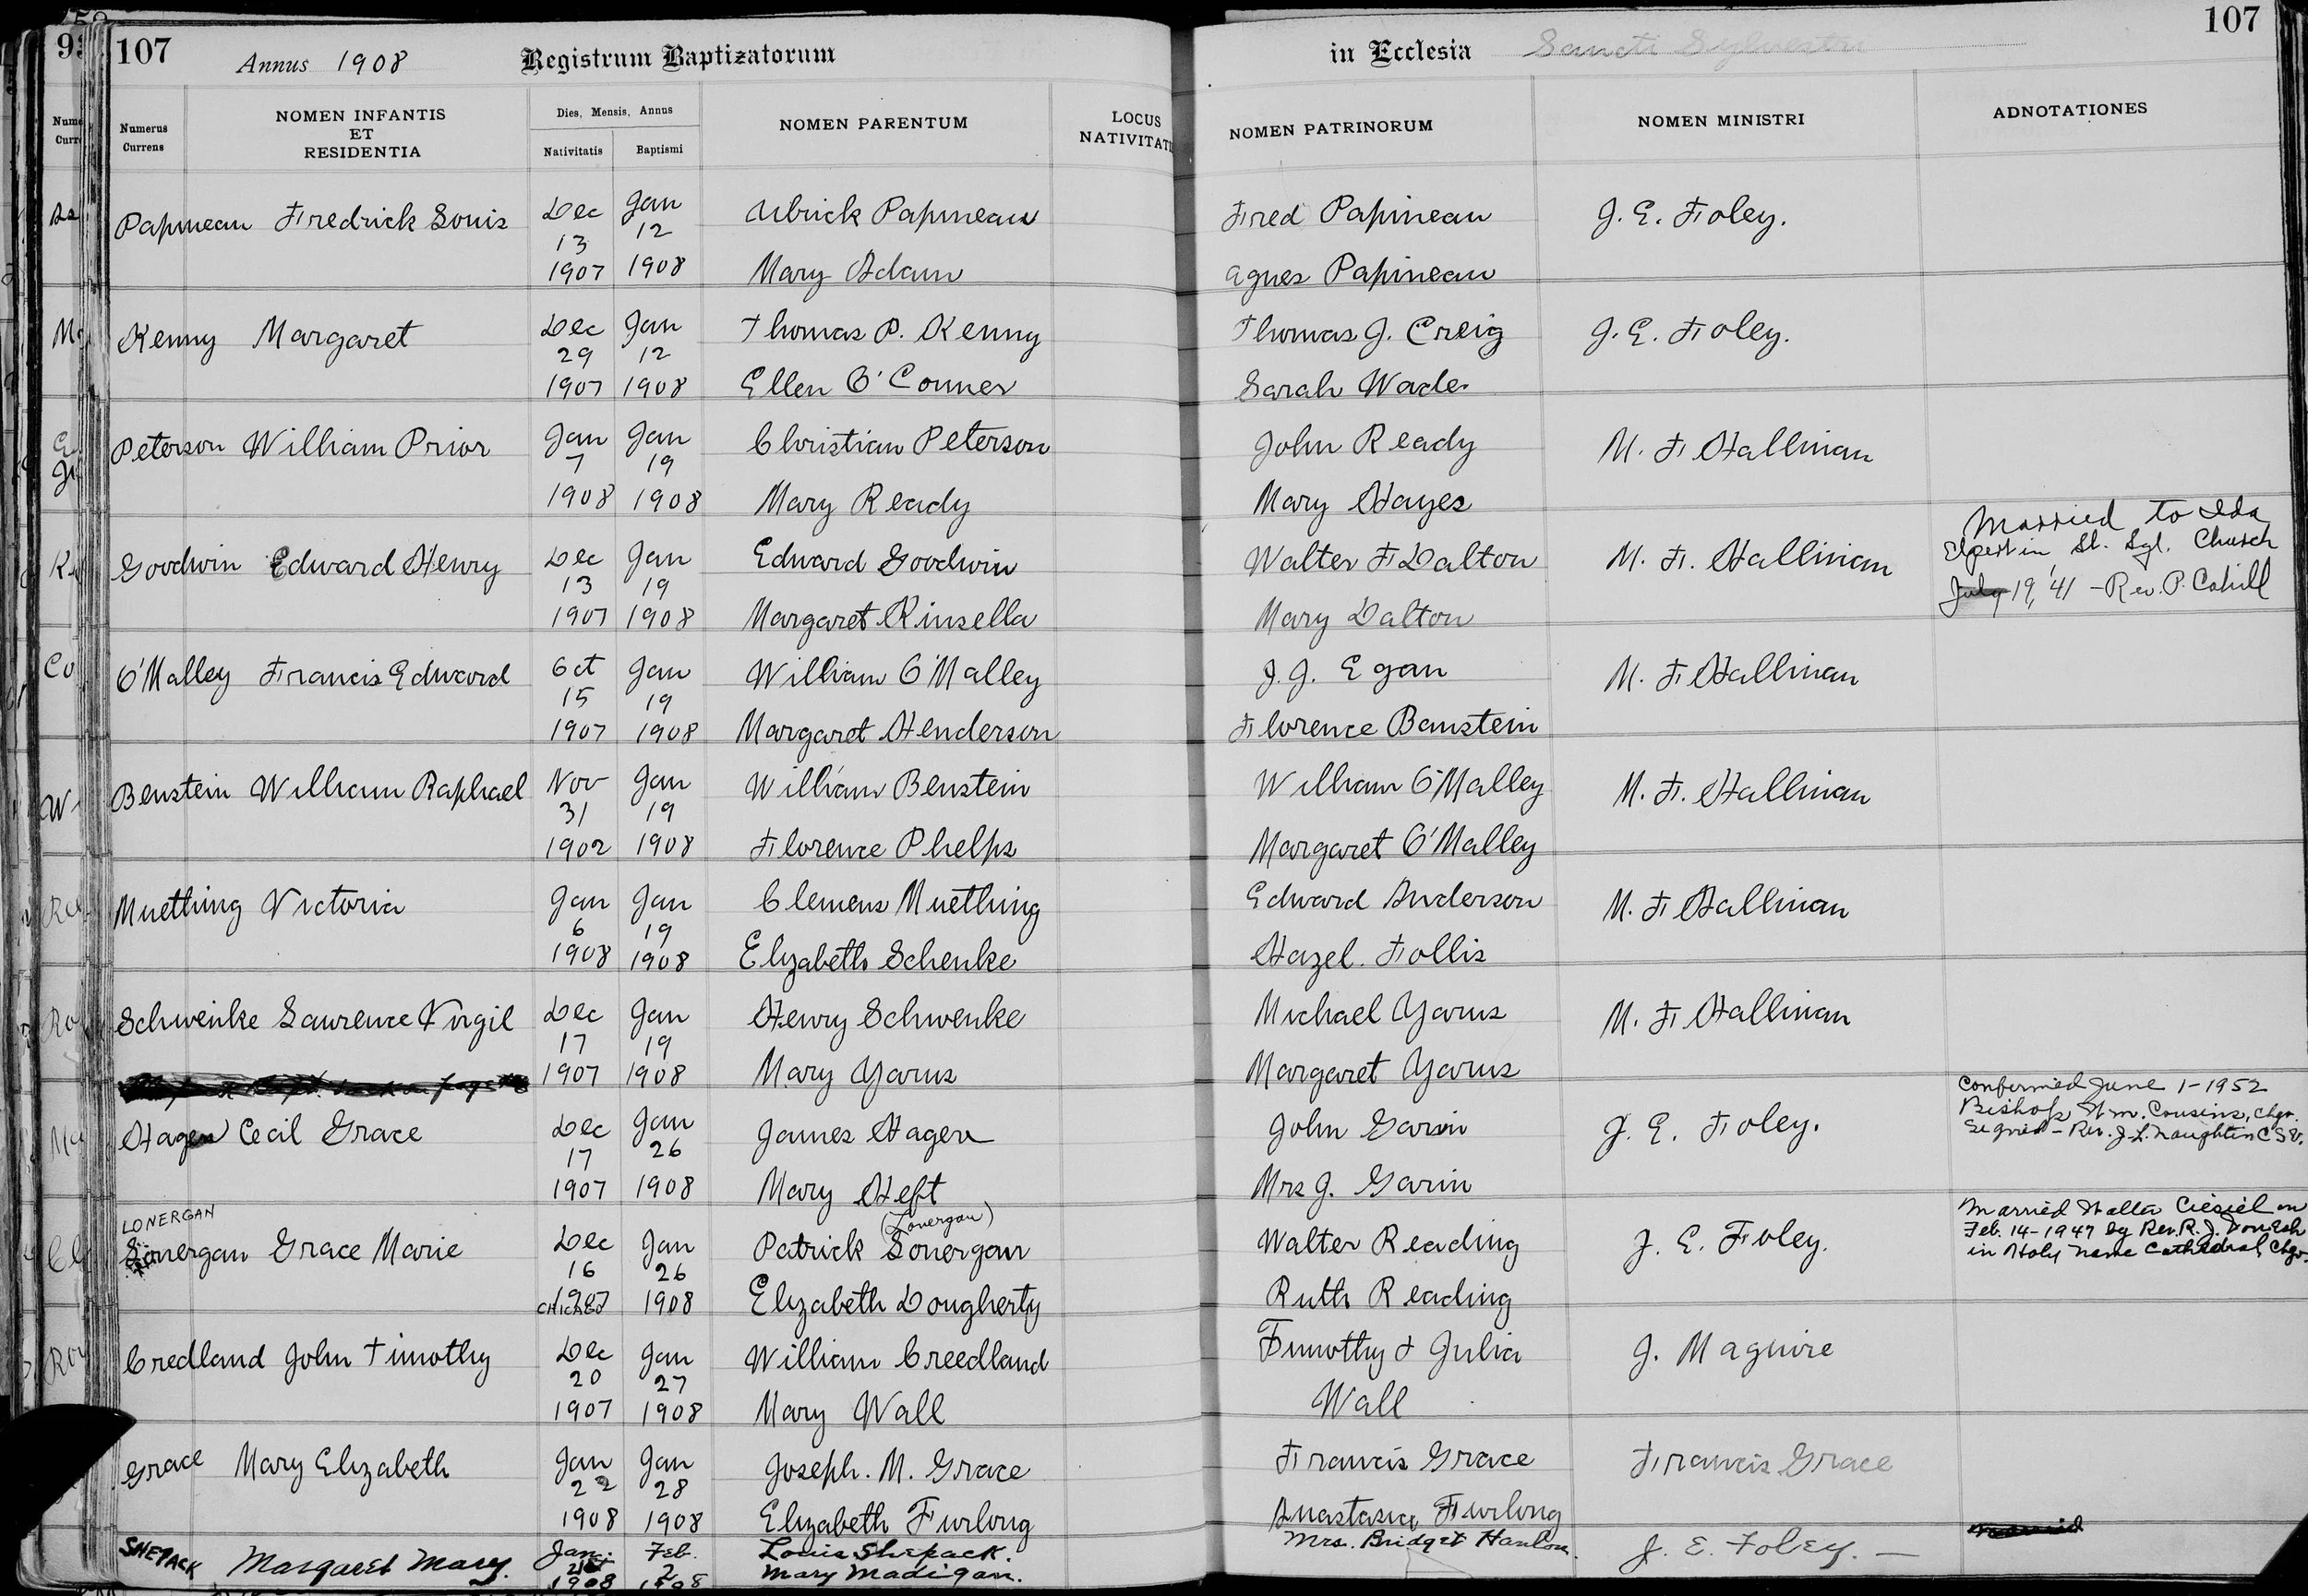 107
Annus 1908
Registrum Baptizatorum
in Ecclesia Sancti Sylvestri
107
Numerus Currens
NOMEN INFANTIS ET RESIDENTIA
Dies, Mensis, Annus
Nativitatis
Baptismi
NOMEN PARENTUM
LOCUS NATIVITATI
NOMEN PATRINORUM
NOMEN MINISTRI
ADNOTATIONES
Papineau Fredrick Louis Dec Jan Ulrick Papineau Fred Papineau J. E. Foley.
13 12
1907 1908 Mary Adam Agnes Papineau
Kenny Margaret Dec Jan Thomas P. Kenny Thomas J. Creig J. E. Foley.
29 12
1907 1908 Ellen O'Conner Sarah Wade
Peterson William Prior Jan Jan Christian Peterson John Ready M. F Hallinan
7 19
1908 1908 Mary Ready Mary Hayes
Married to Ida
Goodwin Edward Henry Dec Jan Edward Goodwin Walter F Dalton M. F. Hallinan in St. Syl. Church
13 19
July 19, '41 - Rev. P. Cahill
1907 1908 Margaret Kinsella Mary Dalton
O'Malley Francis Edward Oct Jan William O'Malley J. J. Egan M. F Hallinan
15 19
1907 1908 Margaret Henderson Florence Banstein
Benstein William Raphael Nov Jan William Benstein William O'Malley M. F. Hallinan
31 19
1902 1908 Florence Phelps Margaret O'Malley
Muething Victoria Jan Jan Clemens Muething Edward Anderson M. F Hallinan
6 19
1908 1908 Elizabeth Schenke Hazel Follis
Schwenke Lawrence Virgil Dec Jan Henry Schwenke Michael Yarus M. F Hallinan
17 19
1907 1908 Mary Yarus Margaret Yarus
Confirmed June 1-1952
Bishop Wm. Cousins, Chgo.
Hagen Cecil Grace Dec Jan James Hagen John Garin J. E. Foley. Signed - Rev. J. L. Naughtin C S V.
17 26
1907 1908 Mary Heft Mrs J. Garin
LONERGAN (Lonergan)
Married Walter Ciesiel on
Lonergan Grace Marie Dec Jan Patrick Lonergan Walter Reading J. E. Foley. Feb. 14-1947 by Rev. R. J.
16 26 in Holy Name Cathedral, Chgo.
1907 1908 Elizabeth Dougherty Ruth Reading
Credland John Timothy Dec Jan William Creedland Timothy & Julia J. Maguire
20 27
1907 1908 Mary Wall Wall
Grace Mary Elizabeth Jan Jan Joseph. M. Grace Francis Grace Francis Grace
22 28
1908 1908 Elizabeth Furlong Anastasia Furlong
SHEPACK Margaret Mary. Jan. Feb. Louis Shepack. Mrs. Bridget Hanlon. J. E. Foley. —
21 2 Mary Madigan.
1908 1908